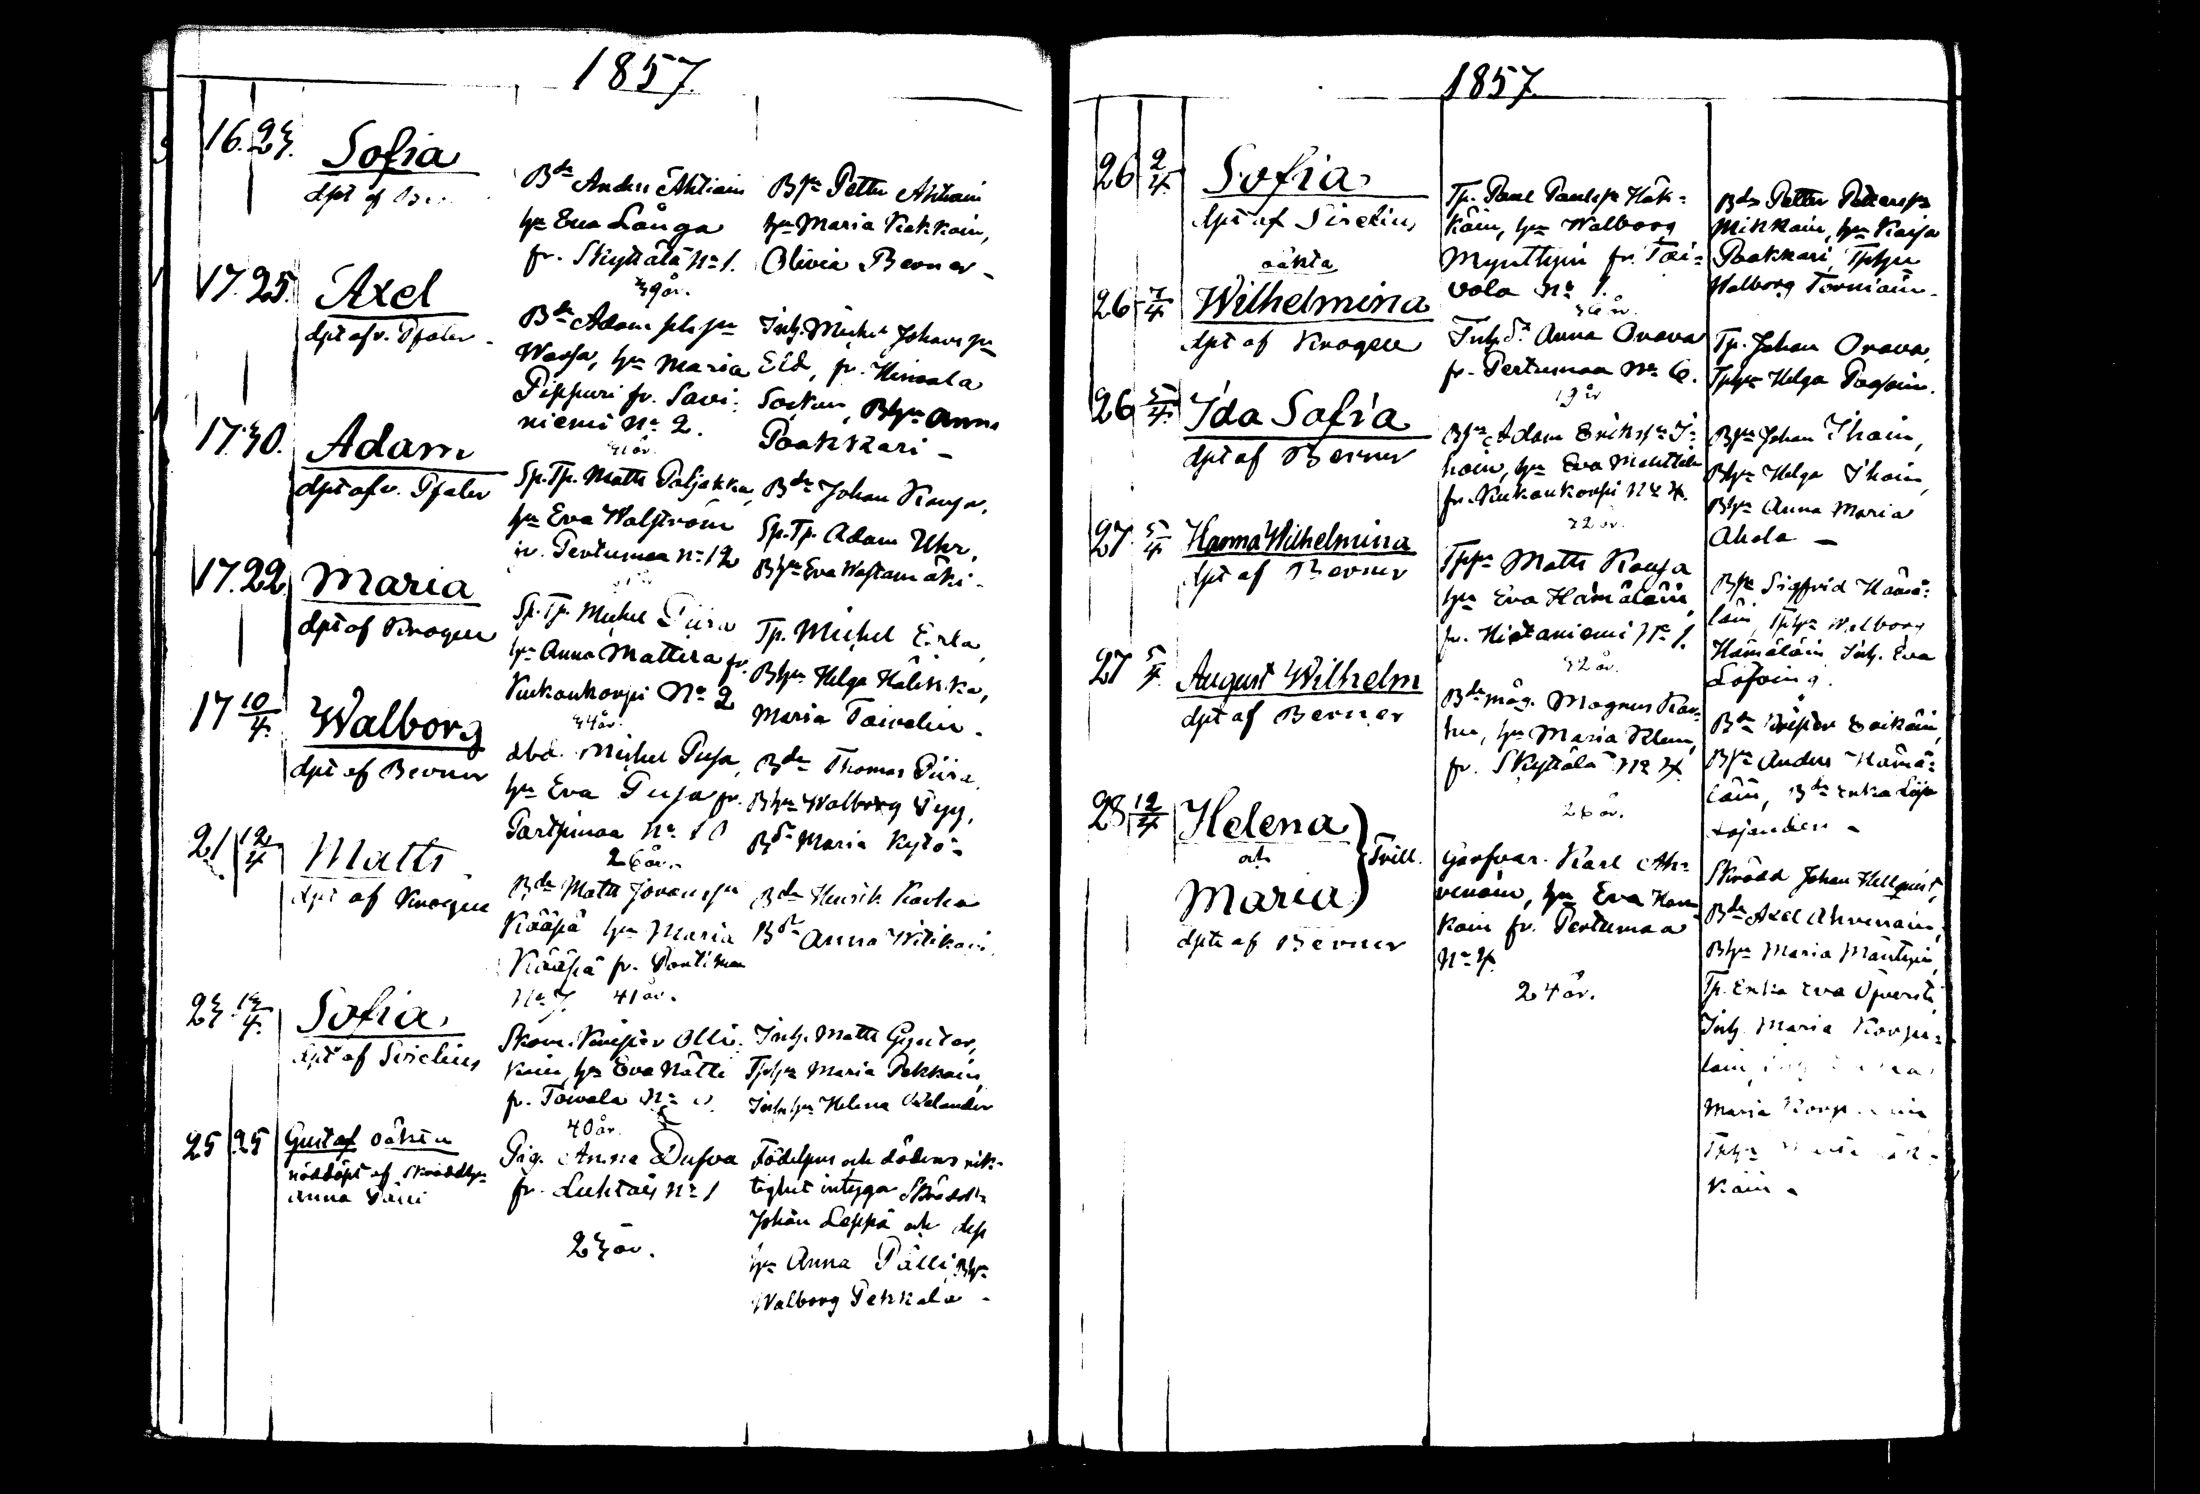 1857.
16. 23. Sofia
dpt af Ber
Bde Anders Ahtiain
hu Eva Långa
fr. Skyttälä No 1.
39 år.
Bsn Petter Ahtiain
hu Maria Kakkoin,
Olivia Berner -
17. 25. Axel
dpt af v. Pfaler
Bde Adam
Warsa, hu Maria
Pippuri fr. Savi-
niemi No 2.
41 år.
Inh. Michel Johanssn
Eld, fr. Himala
Socken, Bhu Anna
Paakkari -
17. 30. Adam
dpt af v. Pfaler
Sp. Tp. Matts Paljakka,
hu Eva Walström
fr. Pertumaa No 12
Bde Johan Kousa,
Sp. Tp. Adam Uhr,
Bhu Eva Wastamäki -
17. 22. Maria
dpt af Krogen
Sp. Tp. Michel Piira
hu Anna Mattila fr.
Kukonkorpi No 2
34 år.
Tp. Michel Erla,
Bhu Helga Halikka,
Maria Toivelin -
17 10/4. Walborg
dpt af Berner
Michel Pusa,
hu Eva Pusa fr.
Partsimaa No 10
26 år.
Bde Thomas Piira,
Bhu Walborg Pyy,
Bdr Maria Kytö -
21 12/4 Matts
dpt af Krogen
Bde Matts Johanssn
Kääpä hu Maria
Kääpä fr.
No 7. 41 år.
Bde Henrik Karhu
Bdr Anna Witikain
23 13/4. Sofia
dpt af Sirelius
Skom. Krister Olli-
kain, hu Eva Nätti
fr. Toivola No
40 år.
Inh. Matts Gynter,
Tphu Maria Pekkain,
Inh. hu Helena Welander
25 25 Gustaf oäkta
nöddöpt af Skräddhu
Anna Pälli
Pig. Anna Dufva
fr. Luhtais No 1
23 år.
Födelsens och dödens rik-
tighet intyga Skrädd.
Johan Leppä och dess
hu Anna Pälli, Bhu
Walborg Pekkala -
1857.
26 2/4. Sofia
dpt af Sirelius
Tp. Paul Paulssn Häk-
käin, hu Walborg
Mynttyin fr. Toi-
vola No 1.
36 år.
Bde Petter Petterssn
Mikkain, hu Kaisa
Paakkari, Tphu
Walborg Torniain -
26 7/4. oäkta
Wilhelmina
dpt af Krogen
Inh. dr Anna Orava
fr. Pertumaa No 6.
19 år
Tp. Johan Orava,
Tphu Helga Pagoin.
26 5/4. Ida Sofia
dpt af Berner
Bsn Adam Erikssn I-
hoin, hu Eva
fr. Kukonkorpi No 4.
22 år.
Bsn Johan Ihoin,
Bhu Helga Ihoin,
Bhu Anna Maria
Ahola -
27. 5/4. Hanna Wilhelmina
dpt af Berner
Tpsn Matts Kousa
hu Eva Hämäläin,
fr. Hietaniemi No 1.
32 år.
Bsn Sigfrid Hämä-
läin, Tphu Walborg
Hämäläin, Inh. Eva
Löfving.
27 5/4. August Wilhelm
dpt af Berner
Bde måg. Magnus Kar-
hu, hu Maria Klem,
fr. Skyttälä No 4.
26 år.
Bde Krister Erikäin,
Bsn Anders Hämä-
läin, Bde Enka Lisa
Lojander -
28 12/4 Helena
och
Maria } Tvill.
dpte af Berner
Garfvar. Karl Ah-
venain, hu Eva Kau-
kain fr. Pertumaa
No 4.
24 år.
Skrädd Johan Hellquist,
Bde Axel Ahvenain,
Bhu Maria Mäntyin,
Tp. Enka Eva Öfversti,
Inh. Maria Korpe-
lain,
Maria Korp
Tphu
kain -